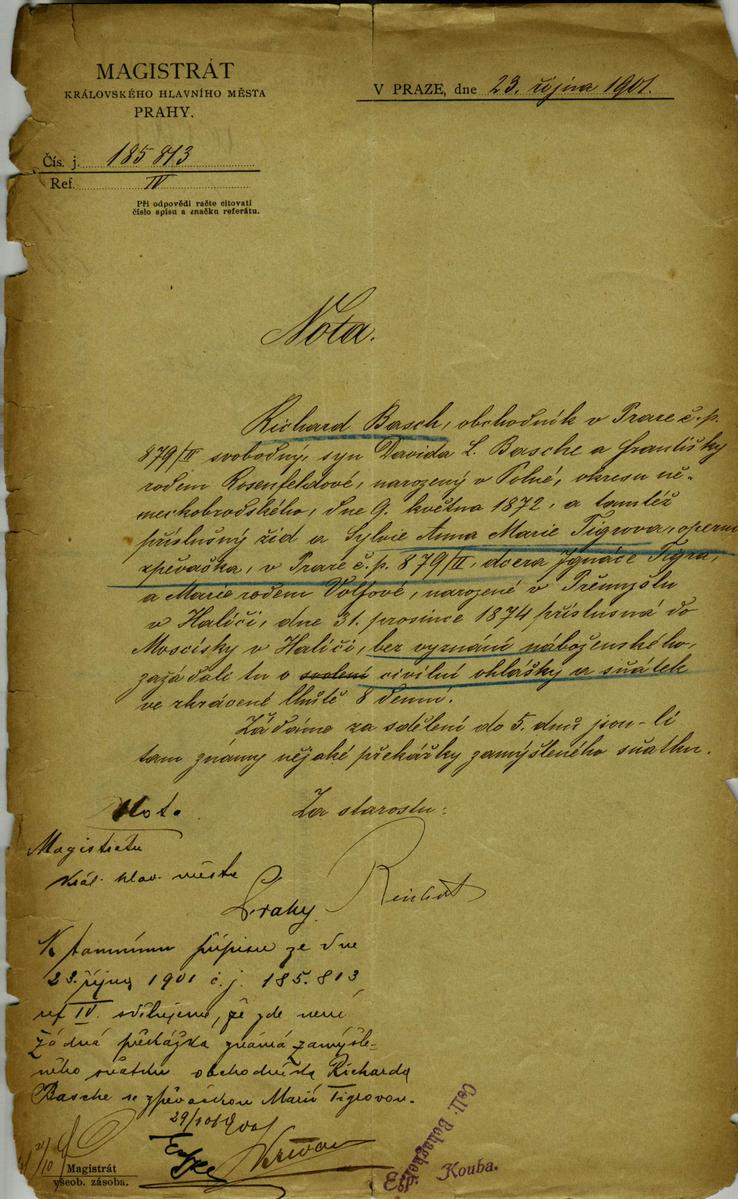 MAGISTRÁT
KRÁLOVSKÉHO HLAVNÍHO MĚSTA
PRAHY.
V PRAZE, dne 23. října 1901.
Čís. j. 185 813
Ref. IV
Při odpovědi račte citovati
číslo spisu a značku referátu.
Nota.
Richard Basch, obchodník v Praze č. p.
879/II svobodný, syn Davida L. Basche a Františky
rodem Rosenfeldové, narozený v Polné, okresu ně-
meckobrodského, dne 9. května 1872, a tamtéž
příslušný žid a Sylvie Anna Marie Tigrova, operní
zpěvačka, v Praze č. p. 879/II, dcera Ignáce Tigra,
a Marie rodem Volfové, narozené v Přemyšlu
v Haliči, dne 31. prosince 1874 příslusná do
Moscisky v Haliči, bez vyznání náboženského,
zažádali tu o svolení civilní ohlášky a sňátek
ve zkrácené lhůtě 8 denní.
Žádáme za sdělení do 5. dnů jsou-li
tam známy nějaké překážky zamýšleného sňatku.
Za starostu:
Nota
Magistrátu
král. hlav. města
Prahy.
K tamnímu přípisu ze dne
23. října 1901 č. j. 185.813
ref IV. sdělujeme, že zde není
žádná překážka známá zamýšle-
ného sňatku obchodníka Richarda
Basche se zpěvačkou Marií Tigrovou.
29/10 1901
31/10
Magistrát
všeob. zásoba.
Kouba.